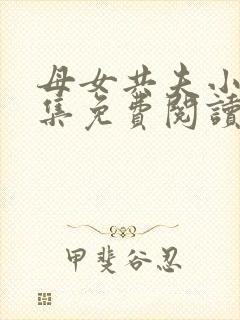 母女共夫小
集免費閱讀
甲斐谷忍